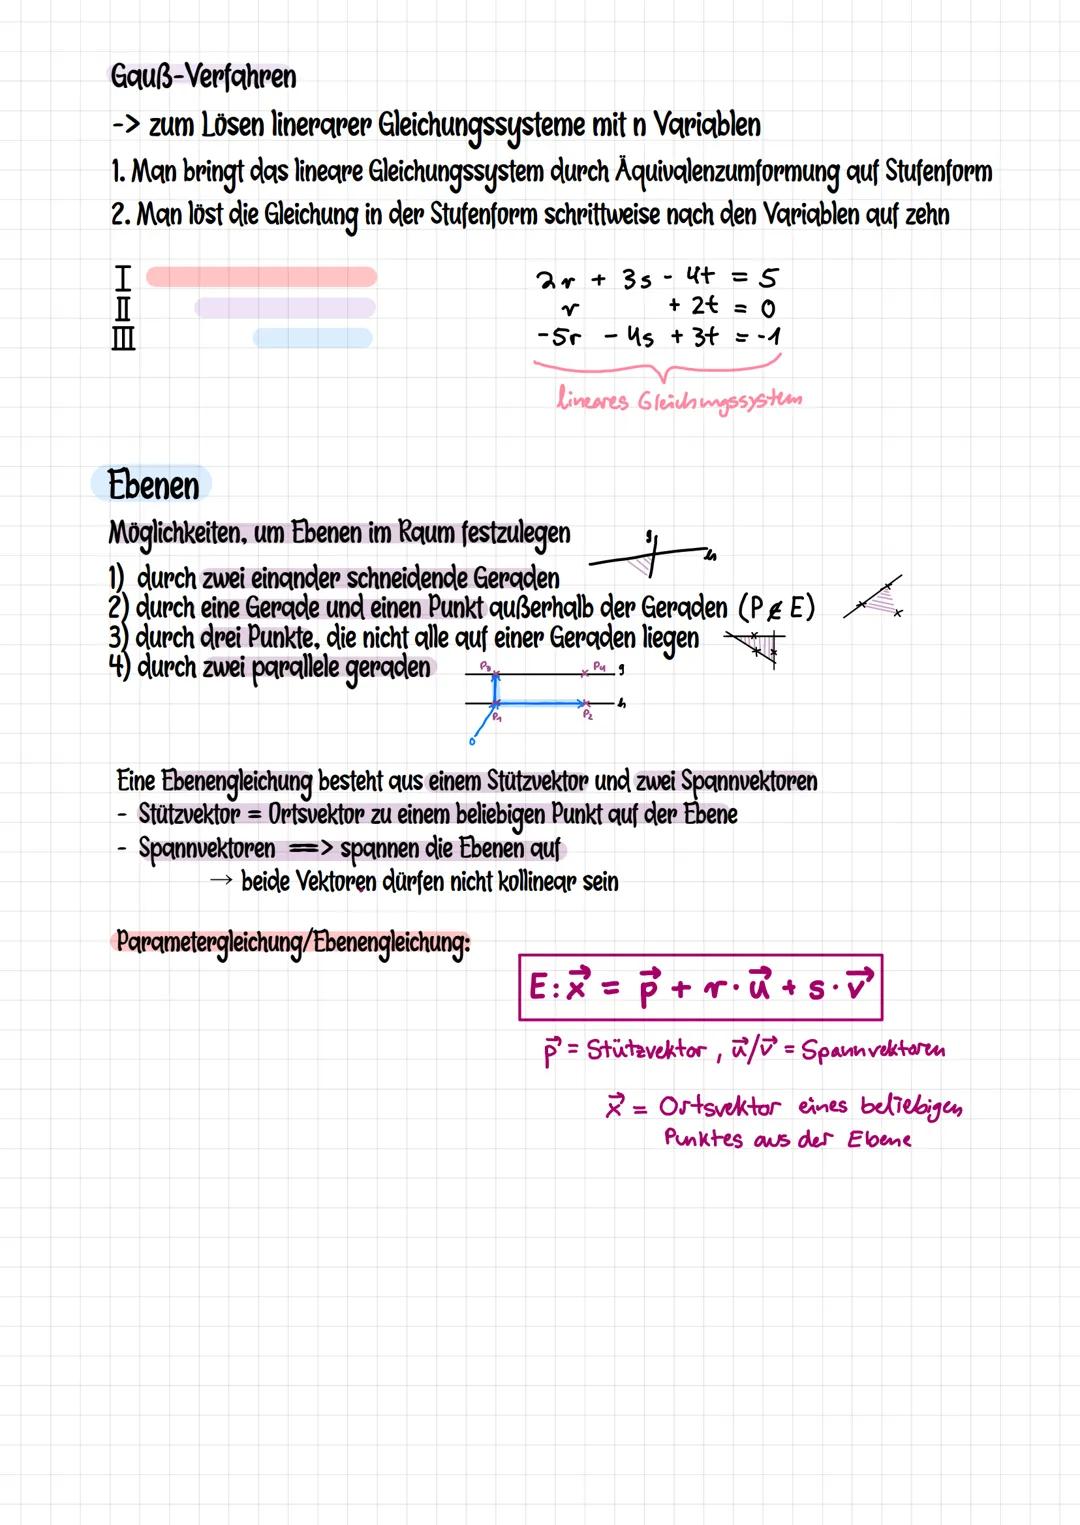 Gauß-Verfahren
-> zum Lösen linerarer Gleichungssysteme mit n Variablen
1. Man bringt das lineare Gleichungssystem durch Äquivalenzumformung auf Stufenform
2. Man löst die Gleichung in der Stufenform schrittweise nach den Variablen auf zehn
I
II
III
2r + 3s - 4t = 5
r + 2t = 0
-5r - 4s + 3t = -1
lineares Gleichungssystem
Ebenen
Möglichkeiten, um Ebenen im Raum festzulegen
g h
1) durch zwei einander schneidende Geraden
2) durch eine Gerade und einen Punkt außerhalb der Geraden (P ∉ E)
3) durch drei Punkte, die nicht alle auf einer Geraden liegen
4) durch zwei parallele geraden
P₃ P₄ g
h
P₁ P₂
0
Eine Ebenengleichung besteht aus einem Stützvektor und zwei Spannvektoren
- Stützvektor = Ortsvektor zu einem beliebigen Punkt auf der Ebene
- Spannvektoren ==> spannen die Ebenen auf
→ beide Vektoren dürfen nicht kollinear sein
Parametergleichung/Ebenengleichung:
E: x⃗ = p⃗ + r · u⃗ + s · v⃗
p⃗ = Stützvektor, u⃗/v⃗ = Spannvektoren
x⃗ = Ortsvektor eines beliebigen
Punktes aus der Ebene